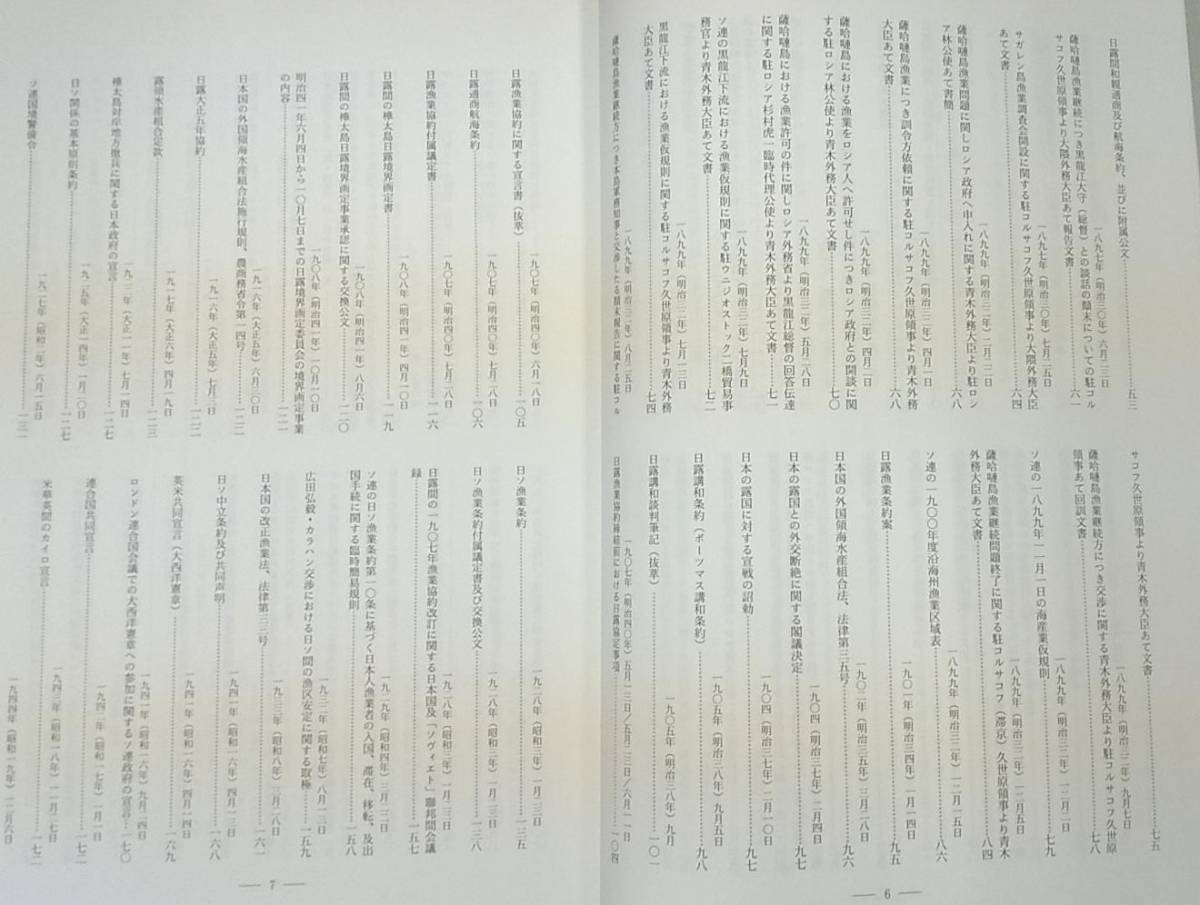 日露間和親通商及び航海条約、並びに附属公文……五三
一八九七年（明治三〇年）六月二三日
薩哈嗹島漁業継続につき黒龍江大守（総督）との談話の顛末についての駐コル
サコフ久世原領事より大隈外務大臣あて報告文書……六一
一八九七年（明治三〇年）七月二五日
サガレン島漁業調査会開設に関する駐コルサコフ久世原領事より大隈外務大臣
あて文書……六四
一八九九年（明治三二年）二月二二日
薩哈嗹島漁業問題に関しロシア政府へ申入れに関する青木外務大臣より駐ロシ
ア林公使あて書簡……六八
一八九九年（明治三二年）四月一日
薩哈嗹島漁業につき訓令方依頼に関する駐コルサコフ久世原領事より青木外務
大臣あて文書……六八
一八九九年（明治三二年）四月二日
薩哈嗹島における漁業をロシア人へ許可せし件につきロシア政府との開談に関
する駐ロシア林公使より青木外務大臣あて文書……七〇
一八九九年（明治三二年）五月二八日
薩哈嗹島における漁業許可の件に関しロシア外務省より黒龍江総督の回答伝達
に関する駐ロシア杉村虎一臨時代理公使より青木外務大臣あて文書……七一
一八九九年（明治三二年）七月九日
ソ連の黒龍江下流における漁業仮規則に関する駐ウニジオストック二橋貿易事
務官より青木外務大臣あて文書……七二
一八九九年（明治三二年）七月一三日
黒龍江下流における漁業仮規則に関する駐コルサコフ久世原領事より青木外務
大臣あて文書……七四
一八九九年（明治三二年）八月二五日
薩哈嗹島漁業継続方につき本島軍務知事と交渉したる顛末報告に関する駐コル
サコフ久世原領事より青木外務大臣あて文書……七五
一八九九年（明治三二年）九月七日
薩哈嗹島漁業継続方につき交渉に関する青木外務大臣より駐コルサコフ久世原
領事あて回訓文書……七八
一八九九年（明治三二年）一二月一日
ソ連の一八九九年一二月一日の海産業仮規則……七九
一八九九年（明治三二年）一二月五日
薩哈嗹島漁業継続問題終了に関する駐コルサコフ（滞京）久世原領事より青木
外務大臣あて文書……八四
一八九九年（明治三二年）一二月一五日
ソ連の一九〇〇年度沿海州漁業区域表……八六
一九〇一年（明治三四年）一月一四日
日露漁業条約案……九五
一九〇二年（明治三五年）三月二八日
日本国の外国領海水産組合法、法律第三五号……九六
一九〇四（明治三七年）二月四日
日本の露国との外交断絶に関する閣議決定……九七
一九〇四（明治三七年）二月一〇日
日本の露国に対する宣戦の詔勅……九七
一九〇五年（明治三八年）九月五日
日露講和条約（ポーツマス講和条約）……九八
一九〇五年（明治三八年）九月
日露講和談判筆記（抜萃）……一〇一
一九〇七年（明治四〇年）五月一三日／五月二三日／六月一一日
日露漁業協約締結前における日露協定事項……一〇四
― 6 ―
一九〇七年（明治四〇年）六月一八日
日露漁業協約に関する宣言書（抜萃）……一〇五
一九〇七年（明治四〇年）七月二八日
日露通商航海条約……一〇六
一九〇七年（明治四〇年）七月二八日
日露漁業協約付属議定書……一一六
一九〇八年（明治四一年）四月一〇日
日露間の樺太島日露境界画定書……一一九
一九〇八年（明治四一年）八月六日
日露間の樺太島日露境界画定事業承認に関する交換公文……一二〇
一九〇八年（明治四一年）一〇月一〇日
明治四一年六月四日から一〇月七日までの日露境界画定委員会の境界画定事業
の内容……一二一
一九一六年（大正五年）六月三〇日
日本国の外国領海水産組合法施行規則、農商務省令第一四号……一二二
一九一六年（大正五年）七月三日
日露大正五年協約……一二二
一九一七年（大正六年）四月一九日
露領水産組合定款……一二三
一九二二年（大正一一年）七月一四日
樺太島対岸地方撤兵に関する日本政府の宣言……一二七
一九二五年（大正一四年）一月二〇日
日ソ関係の基本原則条約……一二七
一九二七年（昭和二年）六月一五日
ソ連国境警備令……一三一
一九二八年（昭和三年）一月二三日
日ソ漁業条約……一三五
一九二八年（昭和三年）一月二三日
日ソ漁業条約付属議定書及び交換公文……一三八
一九二八年（昭和三年）一月二三日
日露間の一九〇七年漁業協約改訂に関する日本国及「ソヴィエト」聯邦間会議
録……一五七
一九二九年（昭和四年）三月二二日
ソ連の日ソ漁業条約第一〇条に基づく日本人漁業者の入国、滞在、移転、及出
国手続に関する臨時簡易規則……一五八
一九三二年（昭和七年）八月一三日
広田弘毅・カラハン交渉における日ソ間の漁区安定に関する取極……一五九
一九三三年（昭和八年）三月二八日
日本国の改正漁業法、法律第三三号……一六一
一九四一年（昭和一六年）四月一三日
日ソ中立条約及び共同声明……一六八
一九四一年（昭和一六年）八月一四日
英米共同宣言（大西洋憲章）……一六九
一九四一年（昭和一六年）九月二四日
ロンドン連合国会議での大西洋憲章への参加に関するソ連政府の宣言……一七〇
一九四二年（昭和一七年）一月一日
連合国共同宣言……一七二
一九四三年（昭和一八年）一一月二七日
米華英間のカイロ宣言……一七二
一九四四年（昭和一九年）一二月六日
― 7 ―